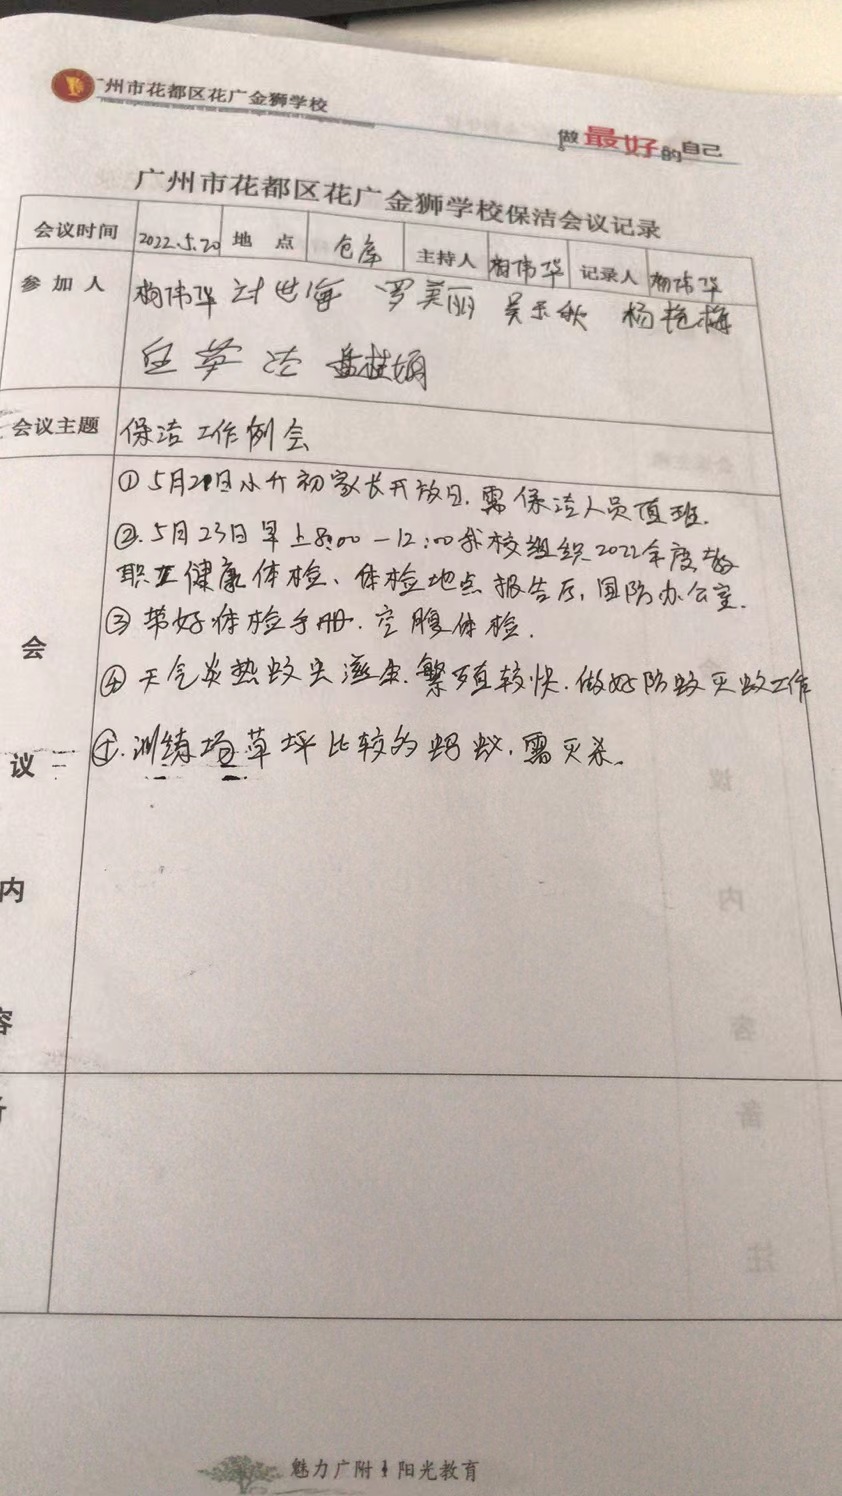 广州市花都区花广金狮学校
做最好的自己
广州市花都区花广金狮学校保洁会议记录
会议时间 2022.5.20 地点 仓库 主持人 杨伟华 记录人 杨伟华
参加人 杨伟华 世海 罗美丽 吴秋 杨艳梅
英 盘桂娟
会议主题 保洁工作例会
①5月21日小升初家长开放日.需保洁人员值班.
②.5月23日早上8:00-12:00我校组织2022年度教
职工健康体检、体检地点报告厅,国防办公室.
③带好体检手册.空腹体检.
④天气炎热蚊虫滋生.繁殖较快.做好防蚊灭蚊工作
⑤.训练场草坪比较多蚂蚁,需灭杀.
会
议
内
容
备
魅力广附 阳光教育